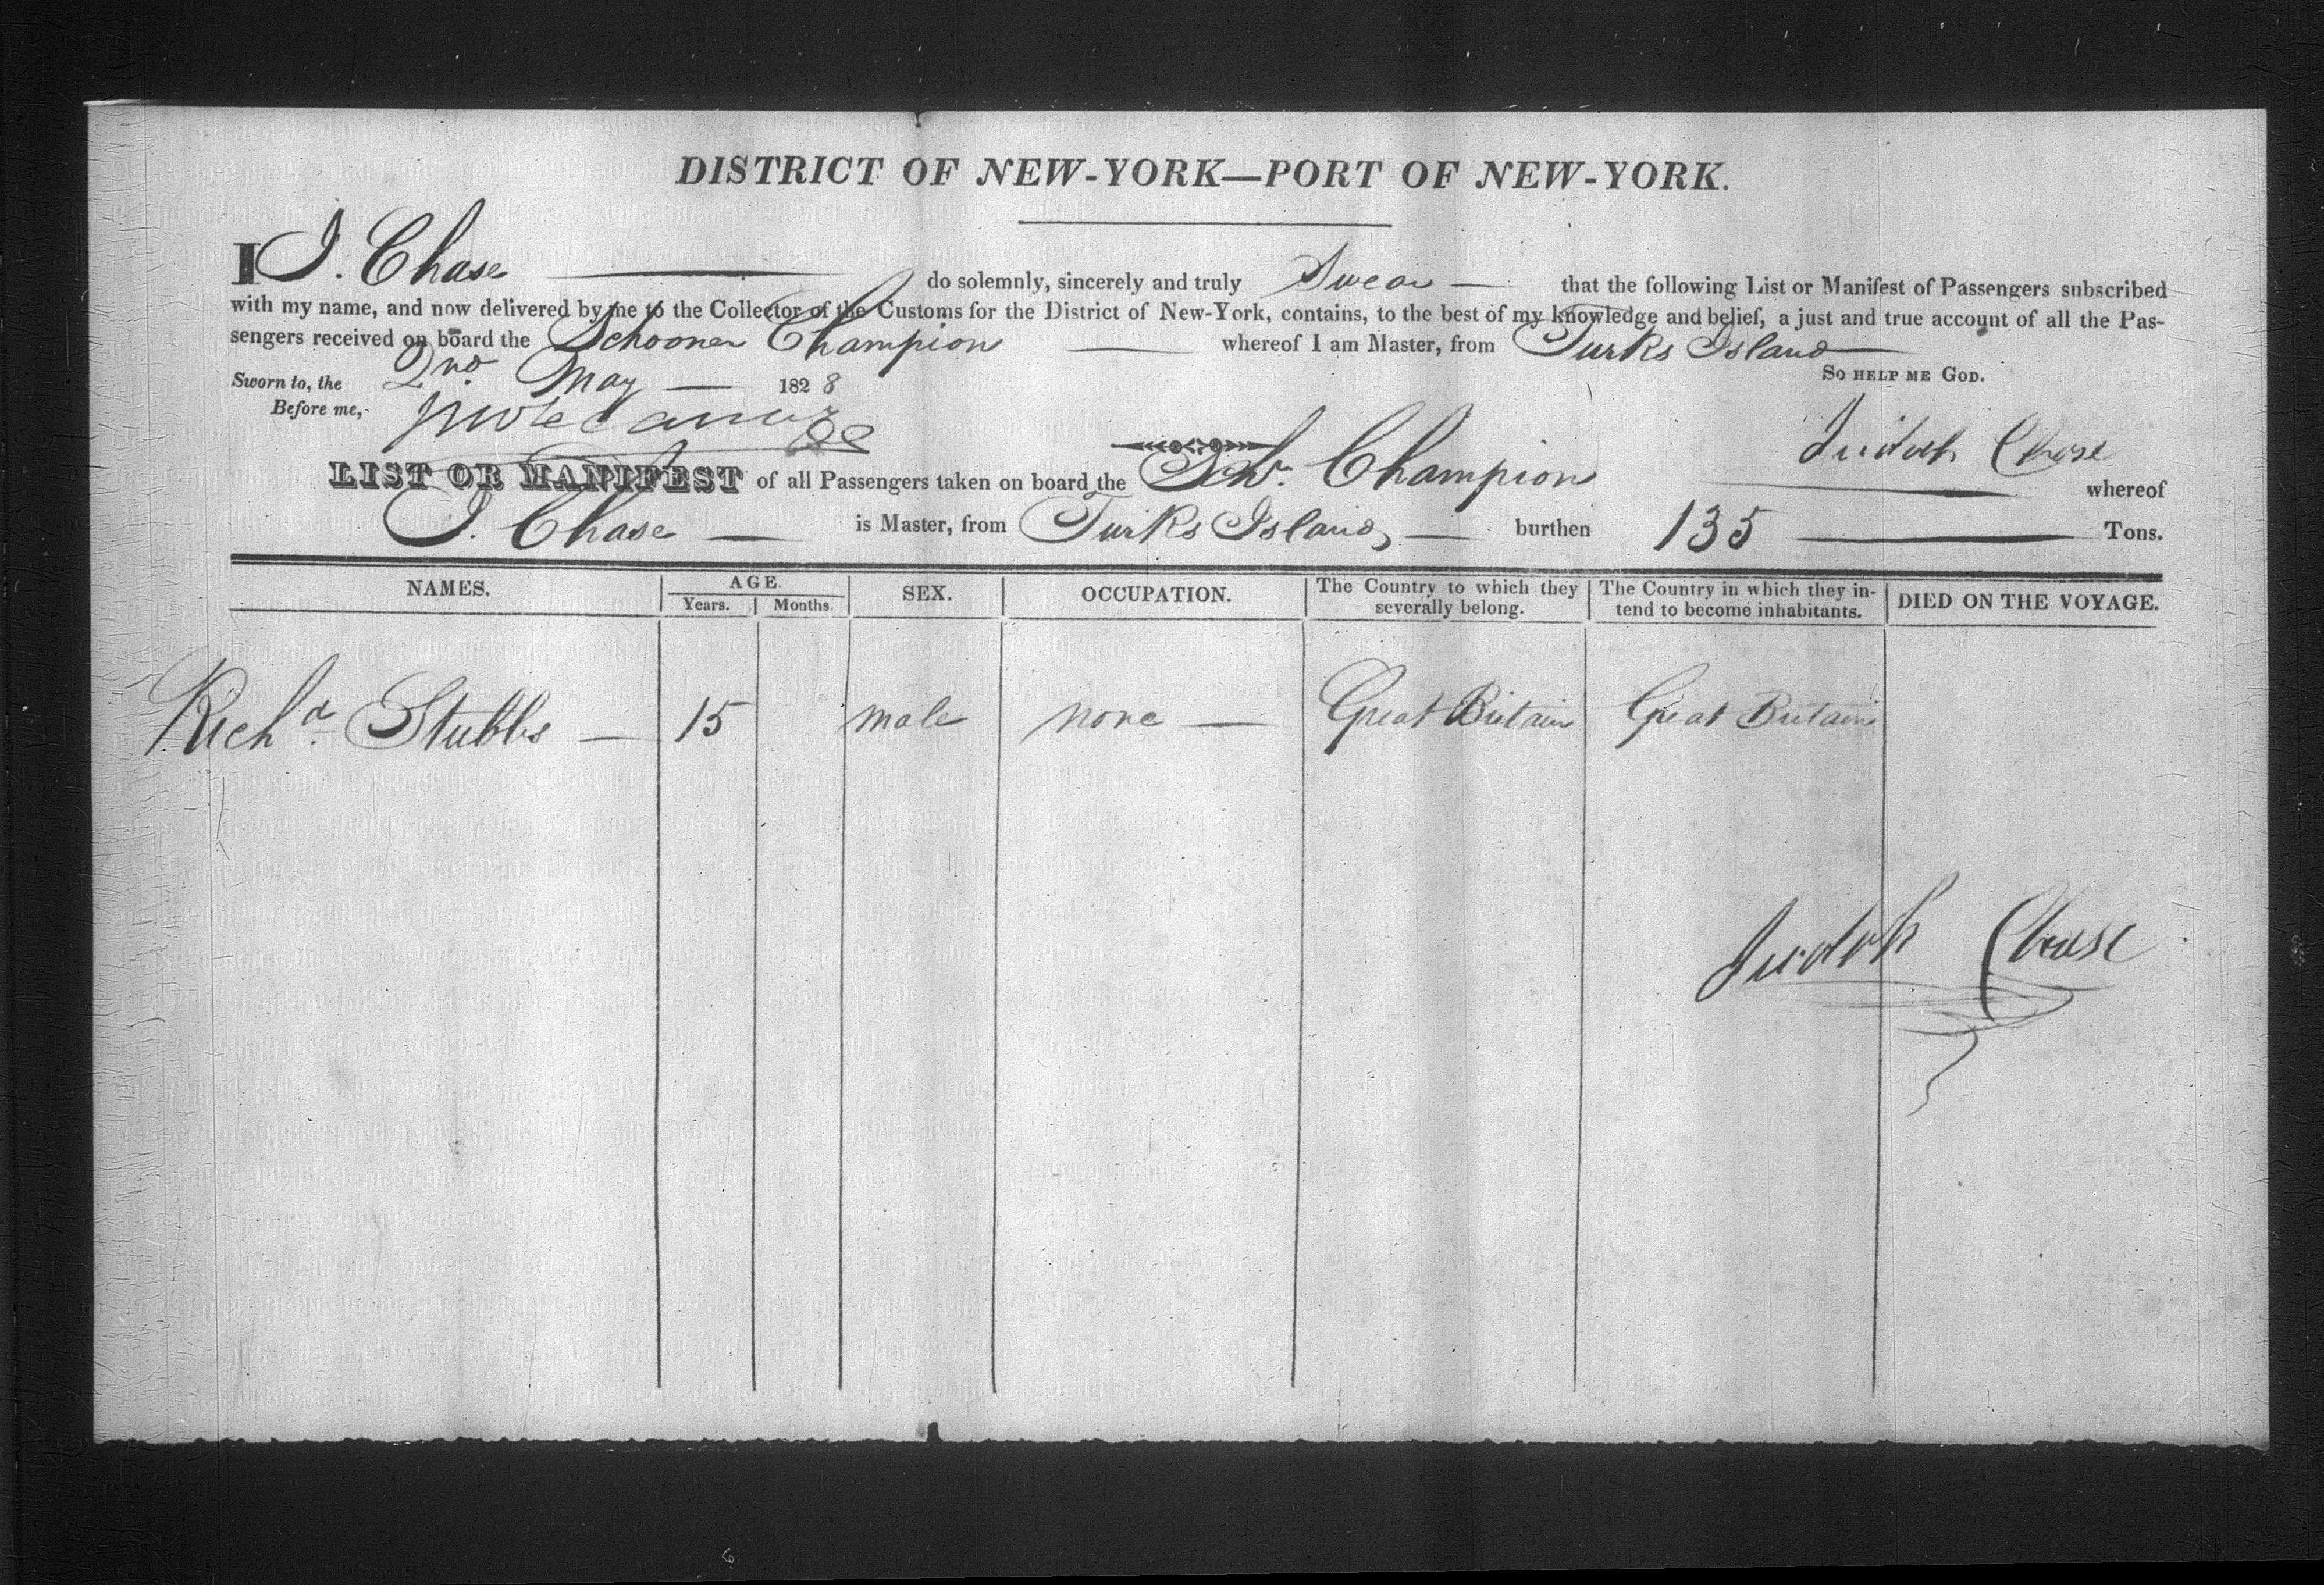 DISTRICT OF NEW-YORK—PORT OF NEW-YORK.
I J. Chase do solemnly, sincerely and truly Swear that the following List or Manifest of Passengers subscribed
with my name, and now delivered by me to the Collector of the Customs for the District of New-York, contains, to the best of my knowledge and belief, a just and true account of all the Pas-
sengers received on board the Schooner Champion whereof I am Master, from Turks Island
Sworn to, the 2nd May 1828 SO HELP ME GOD.
Before me,
Judah Chase
LIST OR MANIFEST of all Passengers taken on board the Schr. Champion whereof
J. Chase is Master, from Turks Island, burthen 135 Tons.
NAMES. AGE. Years. Months. SEX. OCCUPATION. The Country to which they severally belong. The Country in which they in-tend to become inhabitants. DIED ON THE VOYAGE.
Richd. Stubbs 15 male none Great Britain Great Britain
Judah Chase